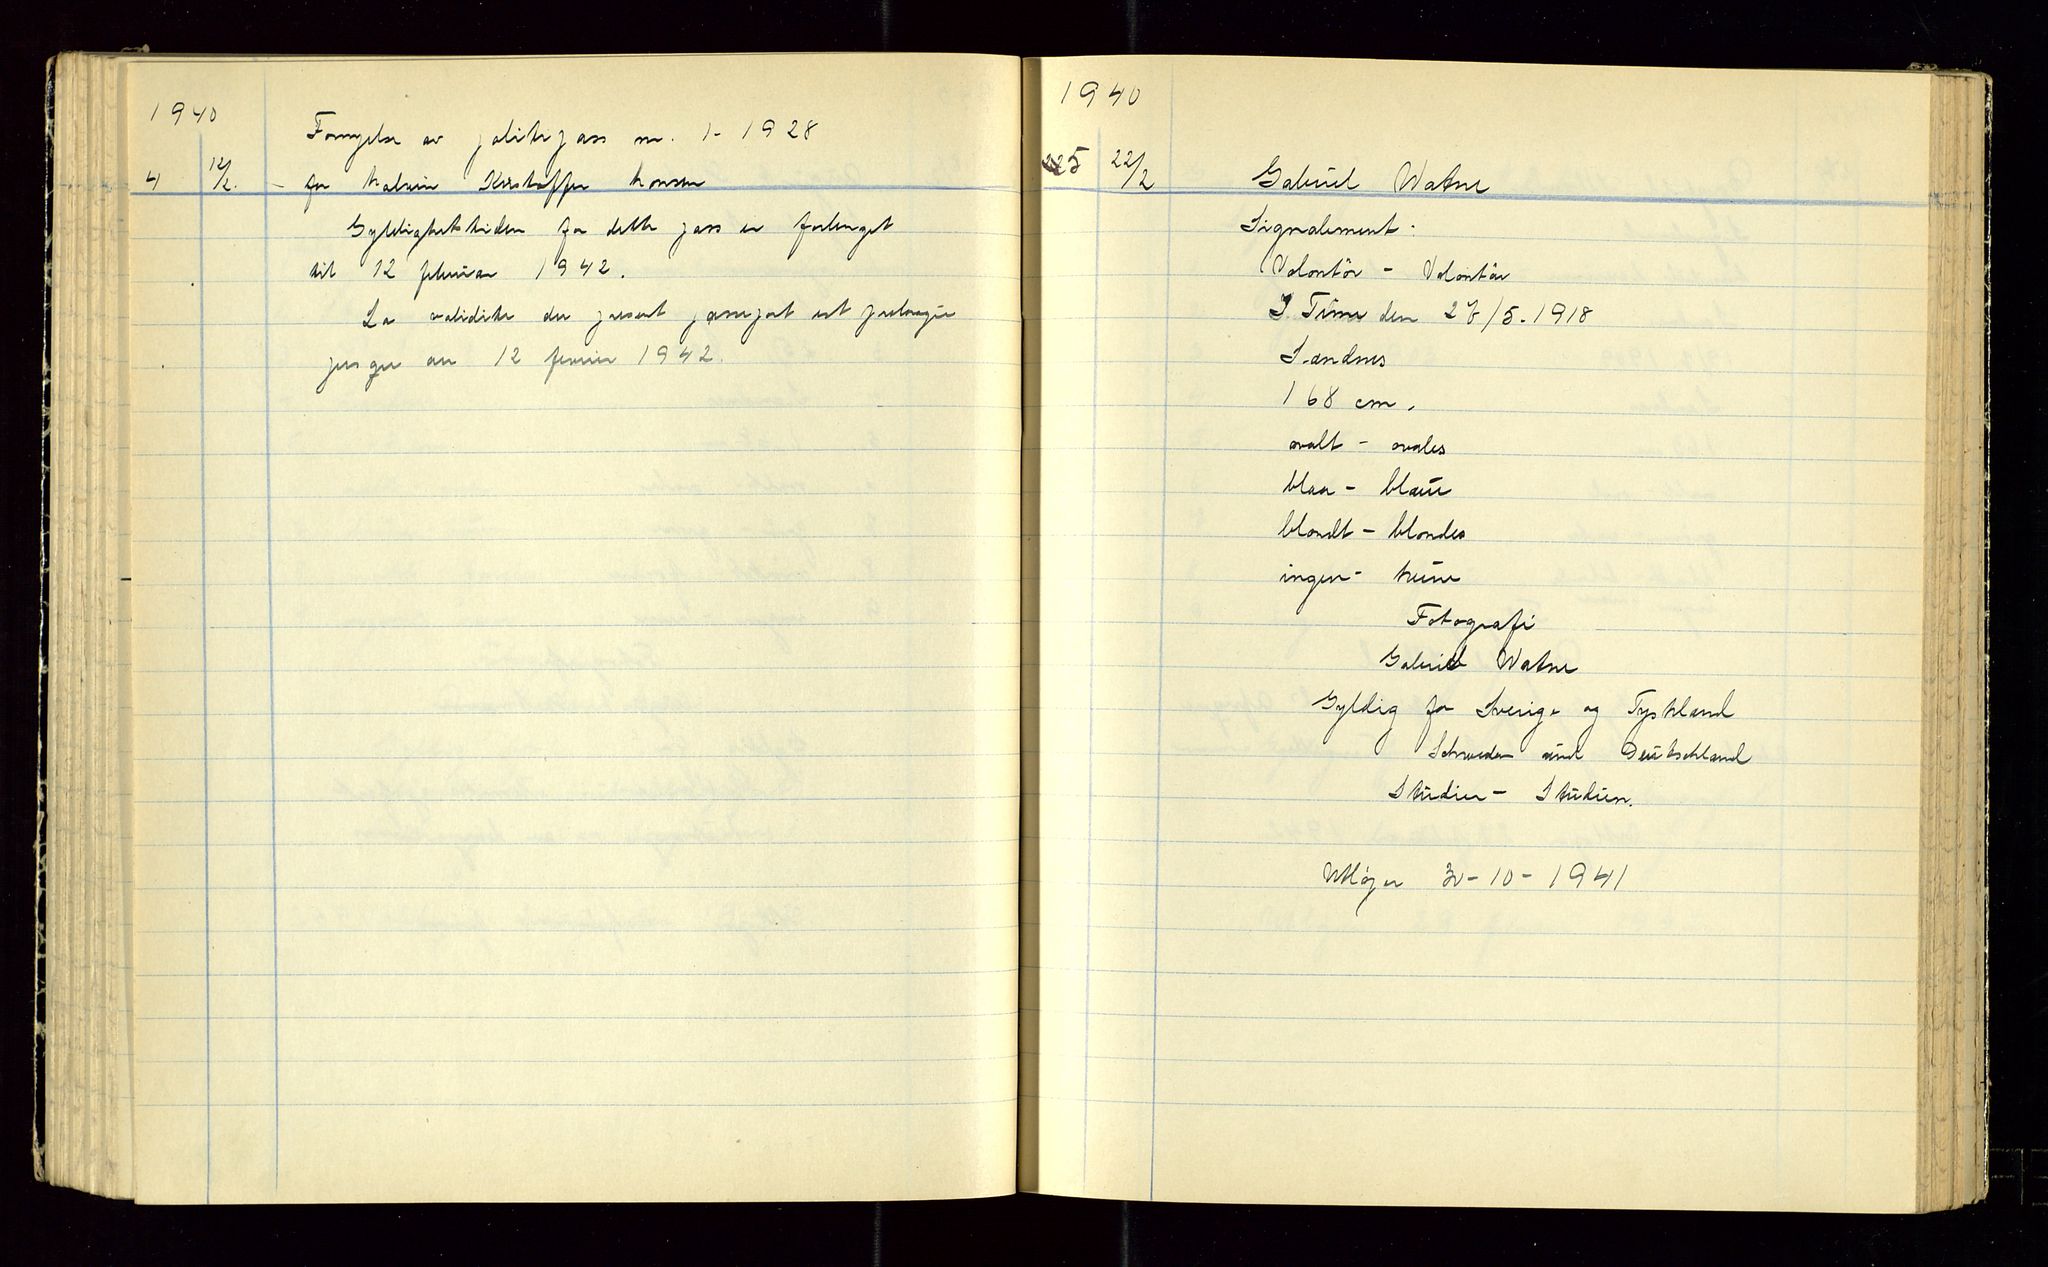 1940
Fornyelse av politipass nr. 1-1928
4 12/2. - for Kristoffer
Gyldighetstiden for dette pass er forlenget
til 12 februar 1942.
La validite du present passeport est prolongée
jusque au 12 fevrier 1942.
1940
5 22/2 Gabriel Watne
Signalement:
Volontör - Volontär
I. Time den 28/5-1918
Sandnes
168 cm.
ovalt - ovales
blaa - blaue
blondt - blondes
ingen - keine
Fotografi
Gabriel Watne
Gyldig for Sverige og Tyskland
Schweden und Deutschland
Studier - Studien.
Utløper 30-10-1941